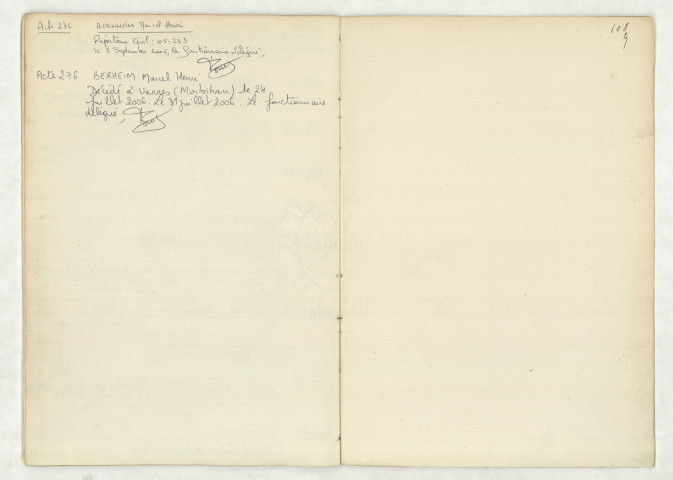 Acte 276 BERNHEIM Marcel Henri
Répertoire Civil : 05-283
le 8 Septembre 2005, le fonctionnaire délégué,
Acte 276 BERHEIM Marcel Henri
Décédé à Vannes (Morbihan) le 24
juillet 2006. Le 31 juillet 2006. Le fonctionnaire
délégué,
108